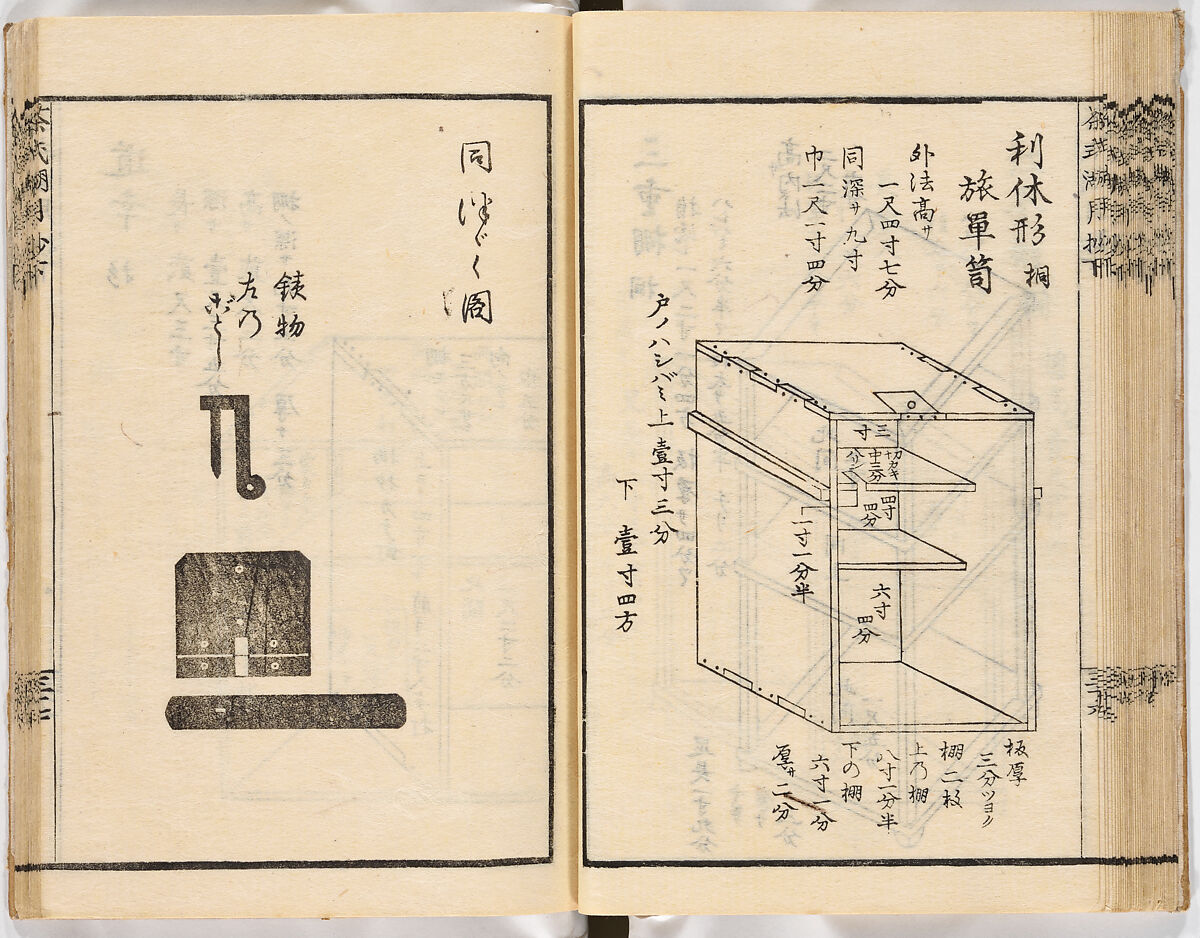 利休形 桐
旅單笥
外法高サ
一尺四寸七分
同深サ九寸
巾一尺一寸四分
三寸
切カキ
中三分
四寸
四分
六寸
四分
一寸一分半
戸ノハシバミ上 壹寸三分
下 壹寸四方
板厚
三分ツヨク
棚二枚
上乃棚
八寸一分半
下の棚
六寸一分
厚サ二分
同
銕物
左乃
ごとし